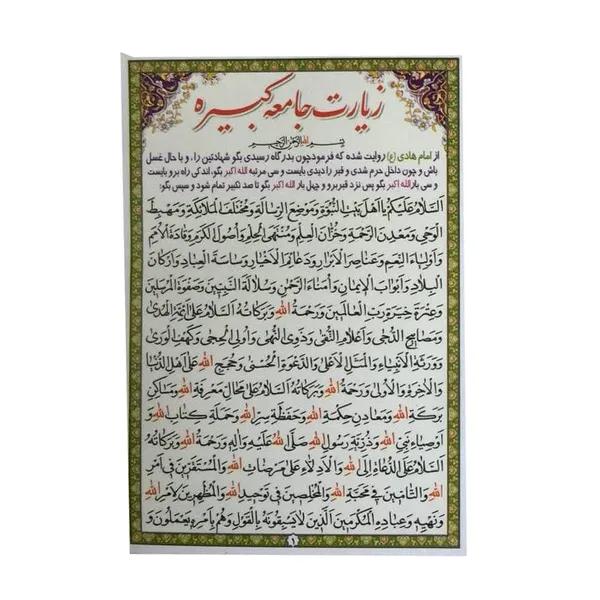 زیارت جامعه کبیره
بِسْمِ اللهِ الرَّحْمٰنِ الرَّحِیمِ
از امام هادی (ع) روایت شده که فرمود چون بدرگاه رسیدی بگو شهادتین را، و با حال غسل
باش و چون داخل حرم شدی و قبر را دیدی بایست و سی مرتبه الله اکبر بگو، اندکی راه برو بایست
و سی بار الله اکبر بگو پس نزد قبر برو و چهل بار الله اکبر بگو تا صد تکبیر تمام شود و سپس بگو:
اَلسَّلَامُ عَلَيْكُمْ يَا اَهْلَ بَيْتِ النُّبُوَّةِ وَمَوْضِعَ الرِّسَالَةِ وَمُخْتَلَفَ الْمَلَائِكَةِ وَمَهْبِطَ
الْوَحْيِ وَمَعْدِنَ الرَّحْمَةِ وَخُزَّانَ الْعِلْمِ وَمُنْتَهَى الْحِلْمِ وَاُصُولَ الْكَرَمِ وَقَادَةَ الْاُمَمِ
وَاَوْلِيَاءَ النِّعَمِ وَعَنَاصِرَ الْاَبْرَارِ وَدَعَائِمَ الْاَخْيَارِ وَسَاسَةَ الْعِبَادِ وَاَرْكَانَ
الْبِلَادِ وَاَبْوَابَ الْاِيمَانِ وَاُمَنَاءَ الرَّحْمٰنِ وَسُلَالَةَ النَّبِيِّينَ وَصَفْوَةَ الْمُرْسَلِينَ
وَعِتْرَةَ خِيَرَةِ رَبِّ الْعَالَمِينَ وَرَحْمَةُ اللهِ وَبَرَكَاتُهُ اَلسَّلَامُ عَلَى اَئِمَّةِ الْهُدَى
وَمَصَابِيحِ الدُّجَى وَاَعْلَامِ التُّقَى وَذَوِي النُّهَى وَاُولِي الْحِجَى وَكَهْفِ الْوَرَى
وَوَرَثَةِ الْاَنْبِيَاءِ وَالْمَثَلِ الْاَعْلَى وَالدَّعْوَةِ الْحُسْنَى وَحُجَجِ اللهِ عَلَى اَهْلِ الدُّنْيَا
وَالْاٰخِرَةِ وَالْاُولَى وَرَحْمَةُ اللهِ وَبَرَكَاتُهُ اَلسَّلَامُ عَلَى مَحَالِّ مَعْرِفَةِ اللهِ وَمَسَاكِنِ
بَرَكَةِ اللهِ وَمَعَادِنِ حِكْمَةِ اللهِ وَحَفَظَةِ سِرِّ اللهِ وَحَمَلَةِ كِتَابِ اللهِ وَ
اَوْصِيَاءِ نَبِيِّ اللهِ وَذُرِّيَّةِ رَسُولِ اللهِ صَلَّى اللهُ عَلَيْهِ وَاٰلِهِ وَرَحْمَةُ اللهِ وَبَرَكَاتُهُ
اَلسَّلَامُ عَلَى الدُّعَاةِ اِلَى اللهِ وَالْاَدِلَّاءِ عَلَى مَرْضَاتِ اللهِ وَالْمُسْتَقِرِّينَ فِي اَمْرِ
اللهِ وَالتَّامِّينَ فِي مَحَبَّةِ اللهِ وَالْمُخْلِصِينَ فِي تَوْحِيدِ اللهِ وَالْمُظْهِرِينَ لِاَمْرِ اللهِ
وَنَهْيِهِ وَعِبَادِهِ الْمُكْرَمِينَ الَّذِينَ لَا يَسْبِقُونَهُ بِالْقَوْلِ وَهُمْ بِاَمْرِهِ يَعْمَلُونَ وَ
۱